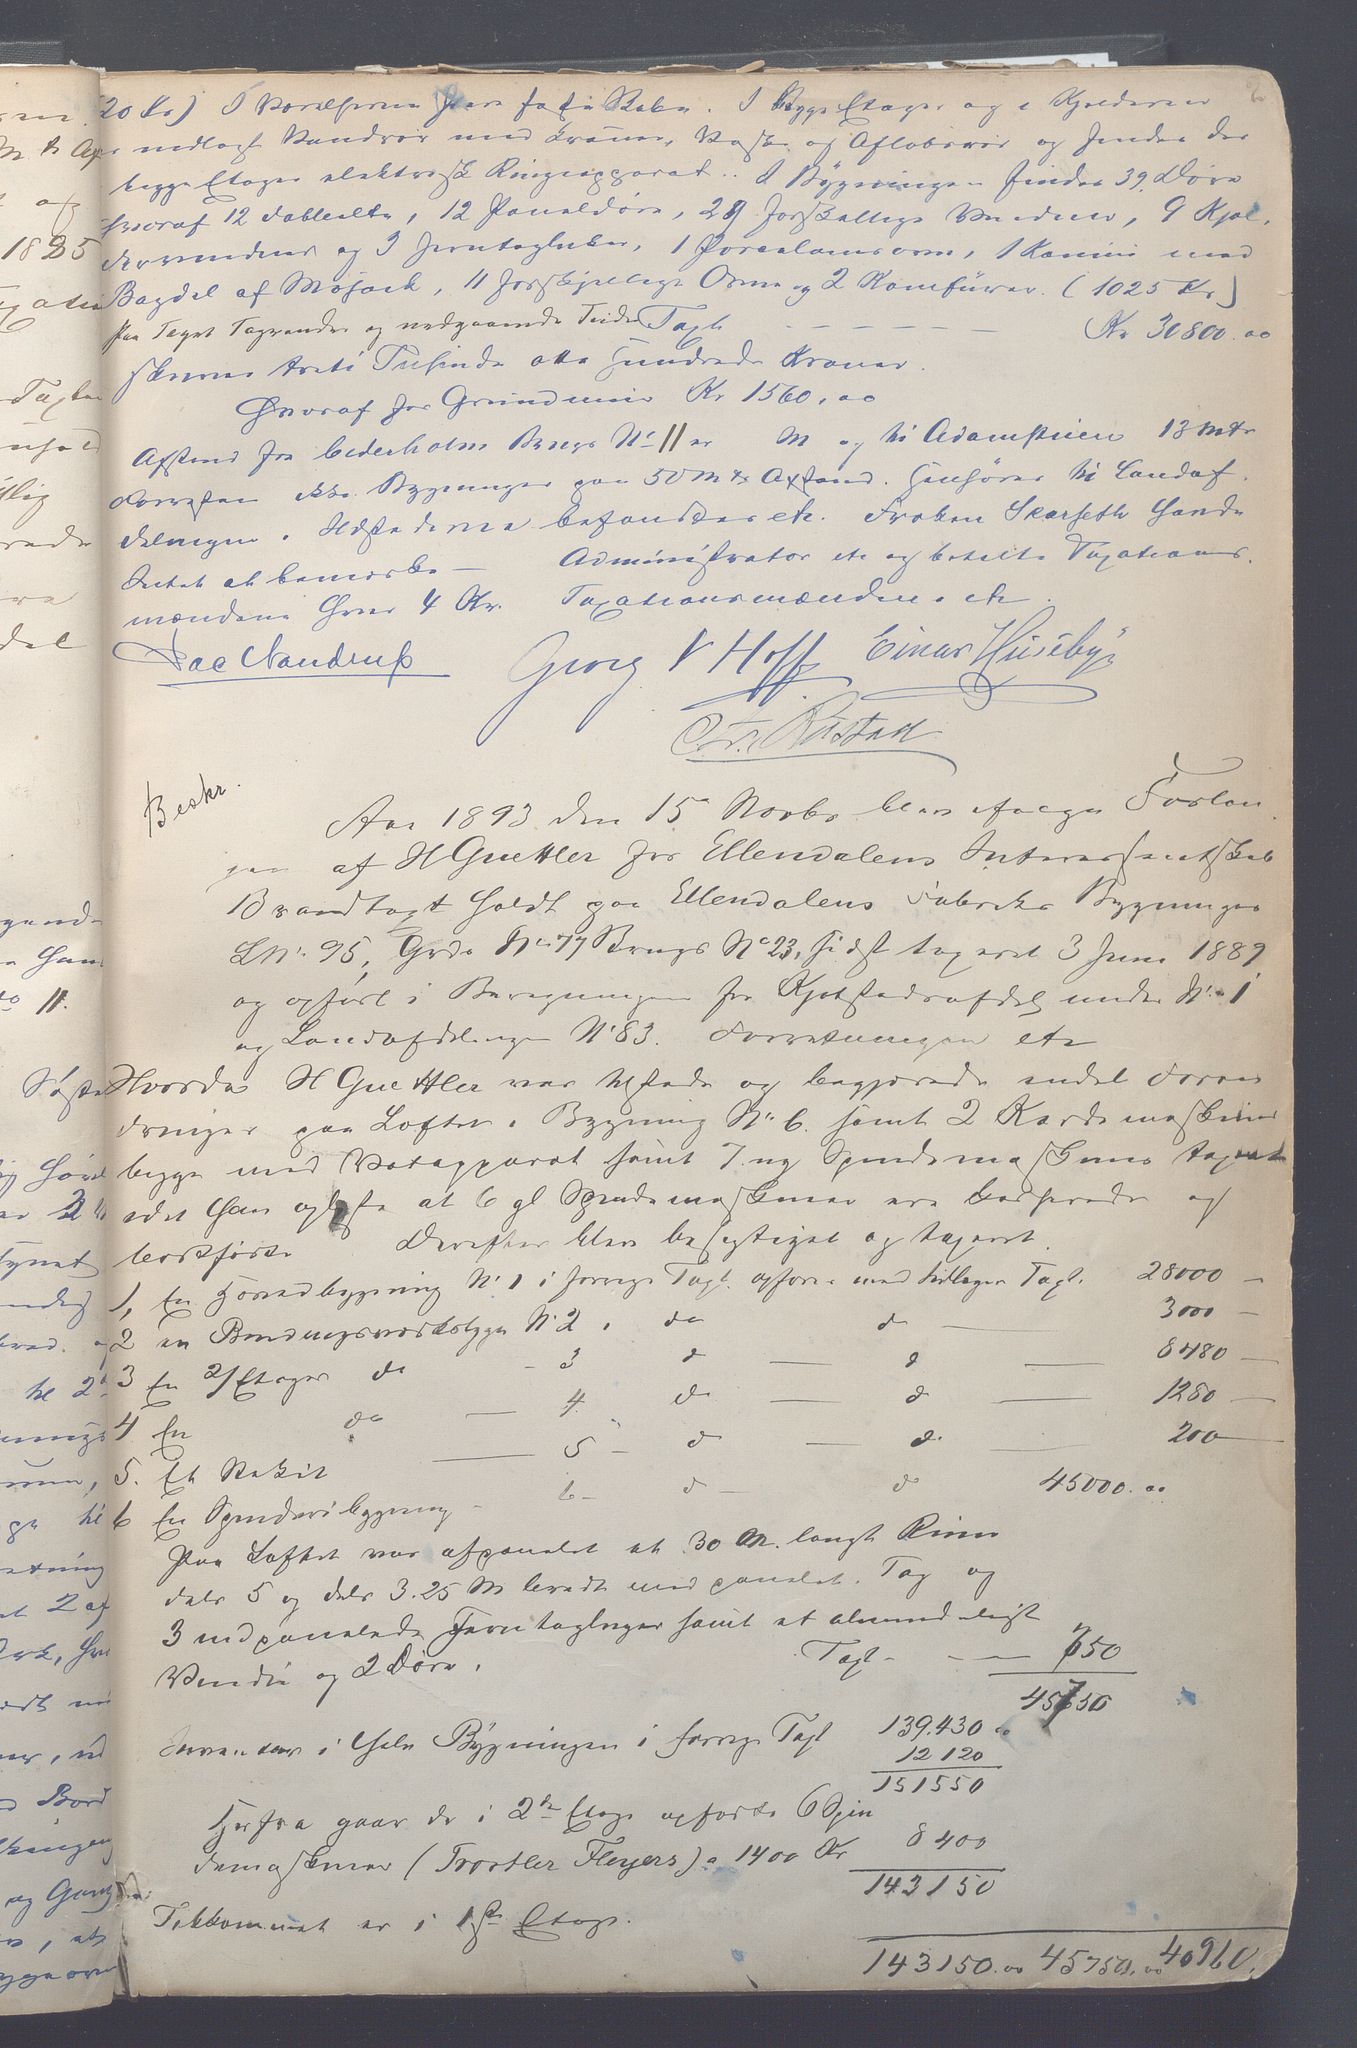 (20 Kr) I Værelserne fare faste Skabe. I Begge Etager og i Kjelderen
nedlagt Vandrør med Kraner, Vask og Afløbsrør og findes der
begge Etager elektrisk Ringeapparat. I Bygningen findes 39 Døre
hvoraf 12 dobbelte, 12 Paneldøre, 29 forskjellige Vinduer, 9 Kjel-
dervinduer og 3 Jerntagluker, 1 Porcelænsovn, 1 Kamin med
Bagdel af Mosaik, 11 forskjellige Ovne og 2 Komfürer. (1025 Kr)
Paa Taget Tagrender og nedgaaende Taxt Kr 30800.00
skriver Treti Tusinde otte Hundrede Kroner.
Hvoraf for Grundmur Kr 1560,00
Afstand fra Cederholms Brugs No 11 er M og til Adamstuen 13 Mtr
forresten ikke Bygninger paa 50 Mtr Afstand. Henhører til Landaf-
delingen. Ildstederne befandtes etc. Frøken Skarseth havde
Intet at bemærke — Administrator etc og betalte Taxations-
mændene hver 4 Kr. Taxationsmændene etc.
Georg V Hoff Einar Huseby
Chr. Rustad
Beskr.
Aar 1893 den 15 Novbr blev ifølge Forlan-
gen af H Guettler for Ellendalens Interessentskab
Brandtaxt holdt paa Ellendalens Fabriks Bygninger
LNo 95, Grds No 77 Brugs No 23, sidst taxeret 3 Juni 1889
og opført i Beregningen for Kjøbstadsafdelg under No 1
og Landafdelingen No 83. Forretningen etc
Hvorda H Guettler var tilstede og begjærede endel Foran-
dringer paa Loftet i Bygning No 6. samt 2 Kardemaskiner
begge med Vatapparat samt 7 ny Spindemaskiner taxeret
idet han oplyste at 6 gl Spindemaskiner ere kasserede og
bortførte Derefter blev besigtiget og taxeret.
1, En Hovedbygning No 1 i forrige Taxt opføres med tidligere Taxt. 28000 —
2 en No 2 i do d — 3000 —
3 En 2/Etages do - 3 d — d — 8480 —
4 En do — 4. do — d — 1280 —
5. Et Stakit — 5 — d — d. — 200 —
6 En Spinderibygning - 6 — d — do 45000.00
Paa Loftet var afpanelet et 30 M. langt Rum
dels 5 og dels 3.25 M bredt med panelet Tag og
3 indpanelede Jerntagluger samt et almindeligt
Vindu og 2 Døre. Taxt - — — 750
45750
Inventar i hele Bygningen i forrige Taxt 139.430 00
12 120
151550
Herfra gaar de i 2den Etage opførte 6 Spin-
demaskiner (Trostler Fleyers) a 1400 Kr 8 400
143150
Tilkommet er i 1ste Etage.
143150.00 45750.00 40960.